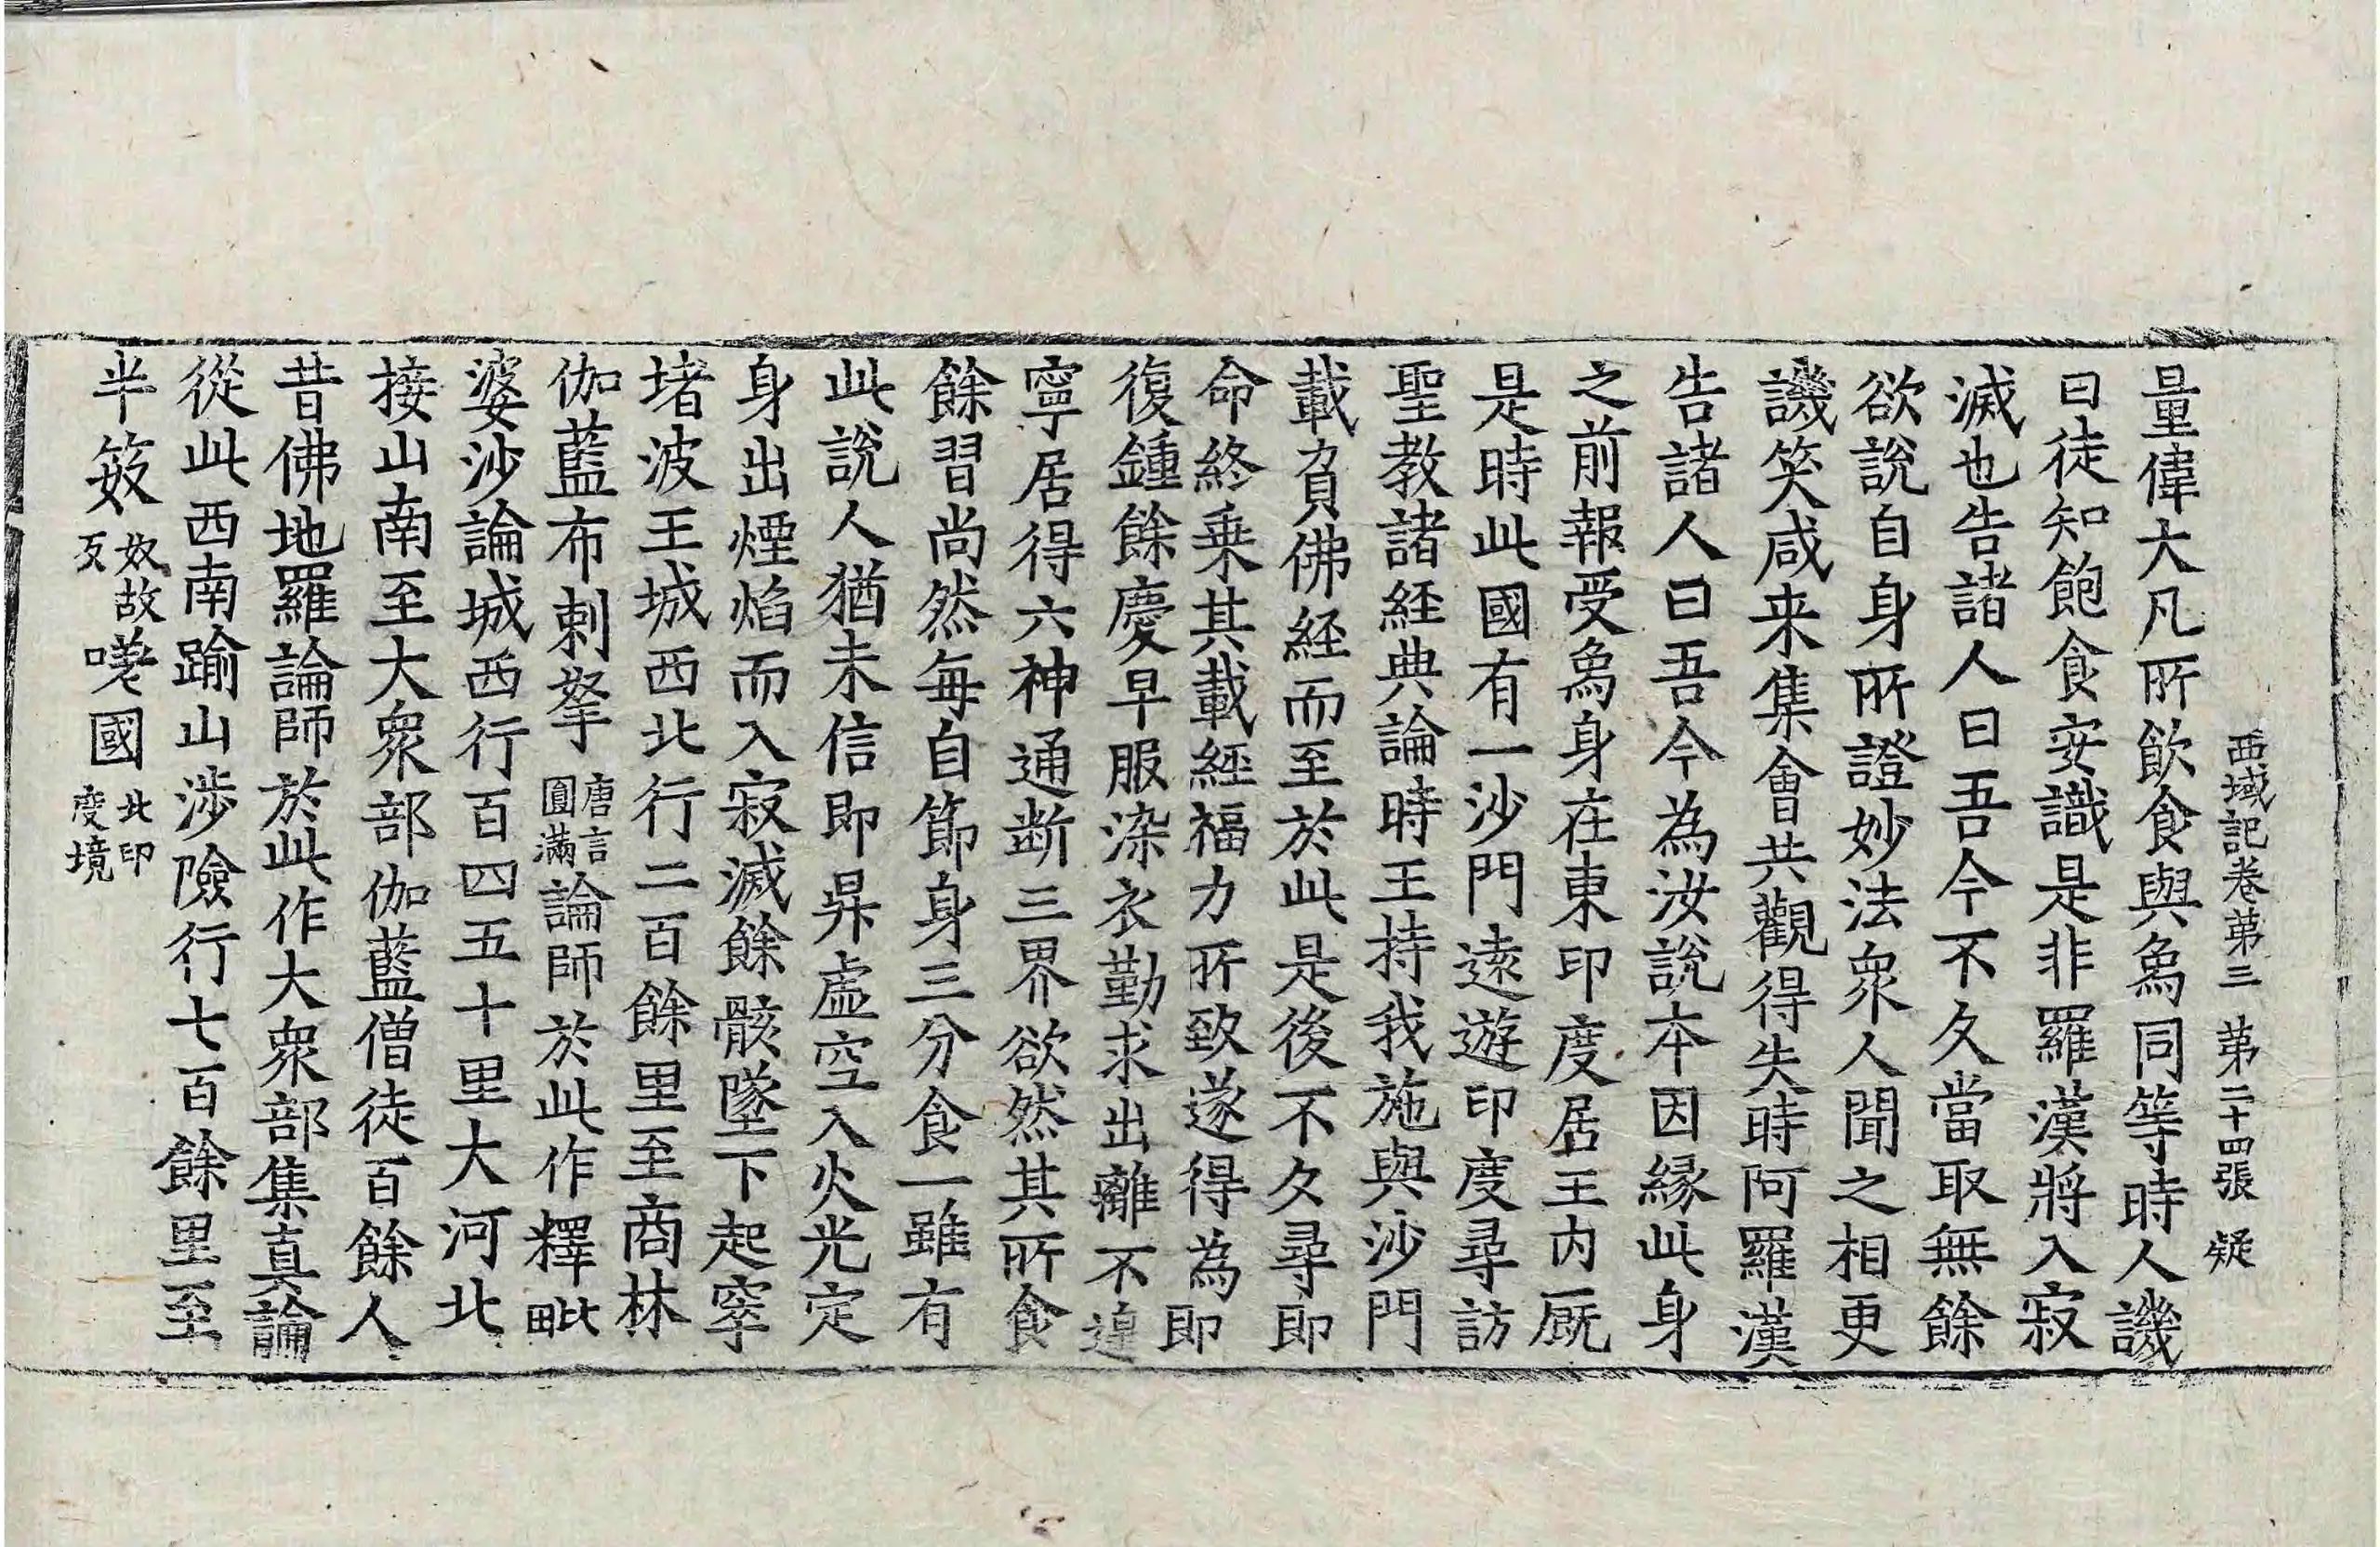 西域記卷第三 第二十四張 疑
量偉大凡所飲食與象同等時人譏
曰徒知飽食安識是非羅漢將入寂
滅也告諸人曰吾今不久當取無餘
欲說自身所證妙法衆人聞之相更
譏笑咸来集會共觀得失時阿羅漢
告諸人曰吾今為汝說本因縁此身
之前報受象身在東印度居王内厩
是時此國有一沙門遠遊印度尋訪
聖教諸経典論時王持我施與沙門
載負佛経而至於此是後不久尋即
命終乗其載經福力所致遂得為即
復鍾餘慶早服染衣勤求出離不遑
寧居得六神通断三界欲然其所食
餘習尚然毎自節身三分食一雖有
此說人猶未信即昇虛空入火光定
身出煙焰而入寂滅餘骸墜下起窣
堵波王城西北行二百餘里至商林
伽藍布剌拏唐言圓滿論師於此作釋毗
婆沙論城西行百四五十里大河北
接山南至大衆部伽藍僧徒百餘人
昔佛地羅論師於此作大衆部集真論
從此西南踰山涉險行七百餘里至
半笯奴故反嗟國北印度境